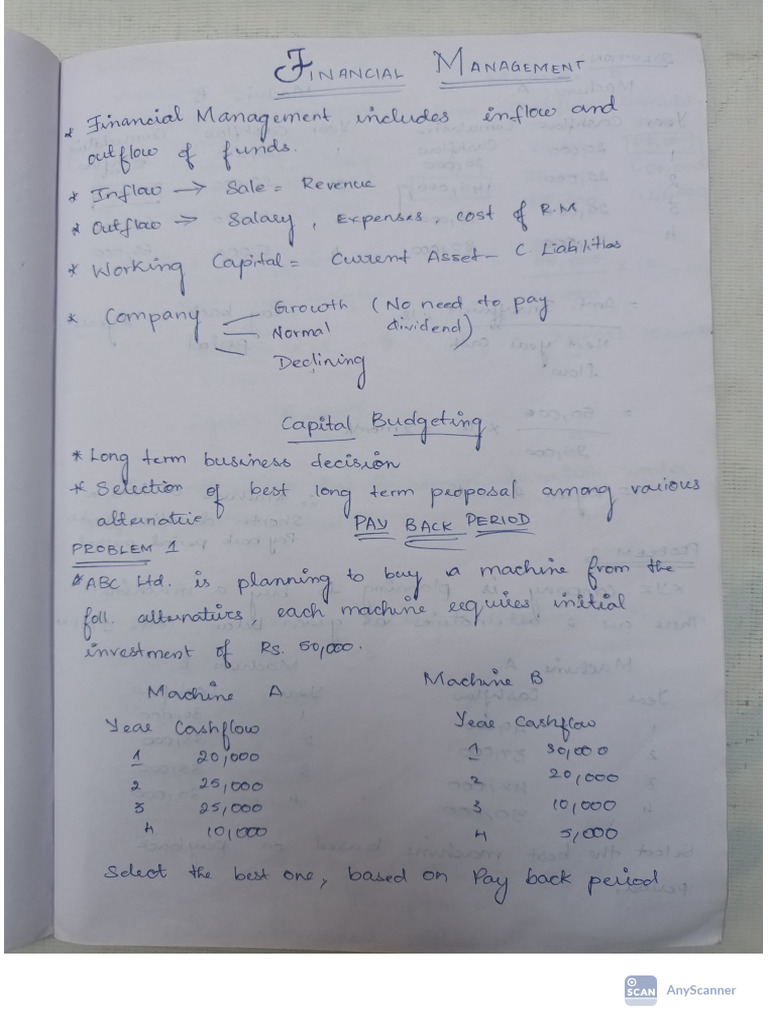 FINANCIAL MANAGEMENT
* Financial Management includes inflow and
outflow of funds.
* Inflow → Sale = Revenue
* Outflow → Salary, Expenses, cost of R.M
* Working Capital = Current Asset - C. Liabilities
* Company Growth (No need to pay
Normal dividend)
Declining
Capital Budgeting
* Long term business decision
* Selection of best long term proposal among various
alternative
PAY BACK PERIOD
PROBLEM 1
* ABC Ltd. is planning to buy a machine from the
foll. alternatives, each machine requires initial
investment of Rs. 50,000.
Machine A Machine B
Year Cashflow Year Cashflow
1 20,000 1 30,000
2 25,000 2 20,000
3 25,000 3 10,000
4 10,000 4 5,000
Select the best one, based on Pay back period
SCAN AnyScanner